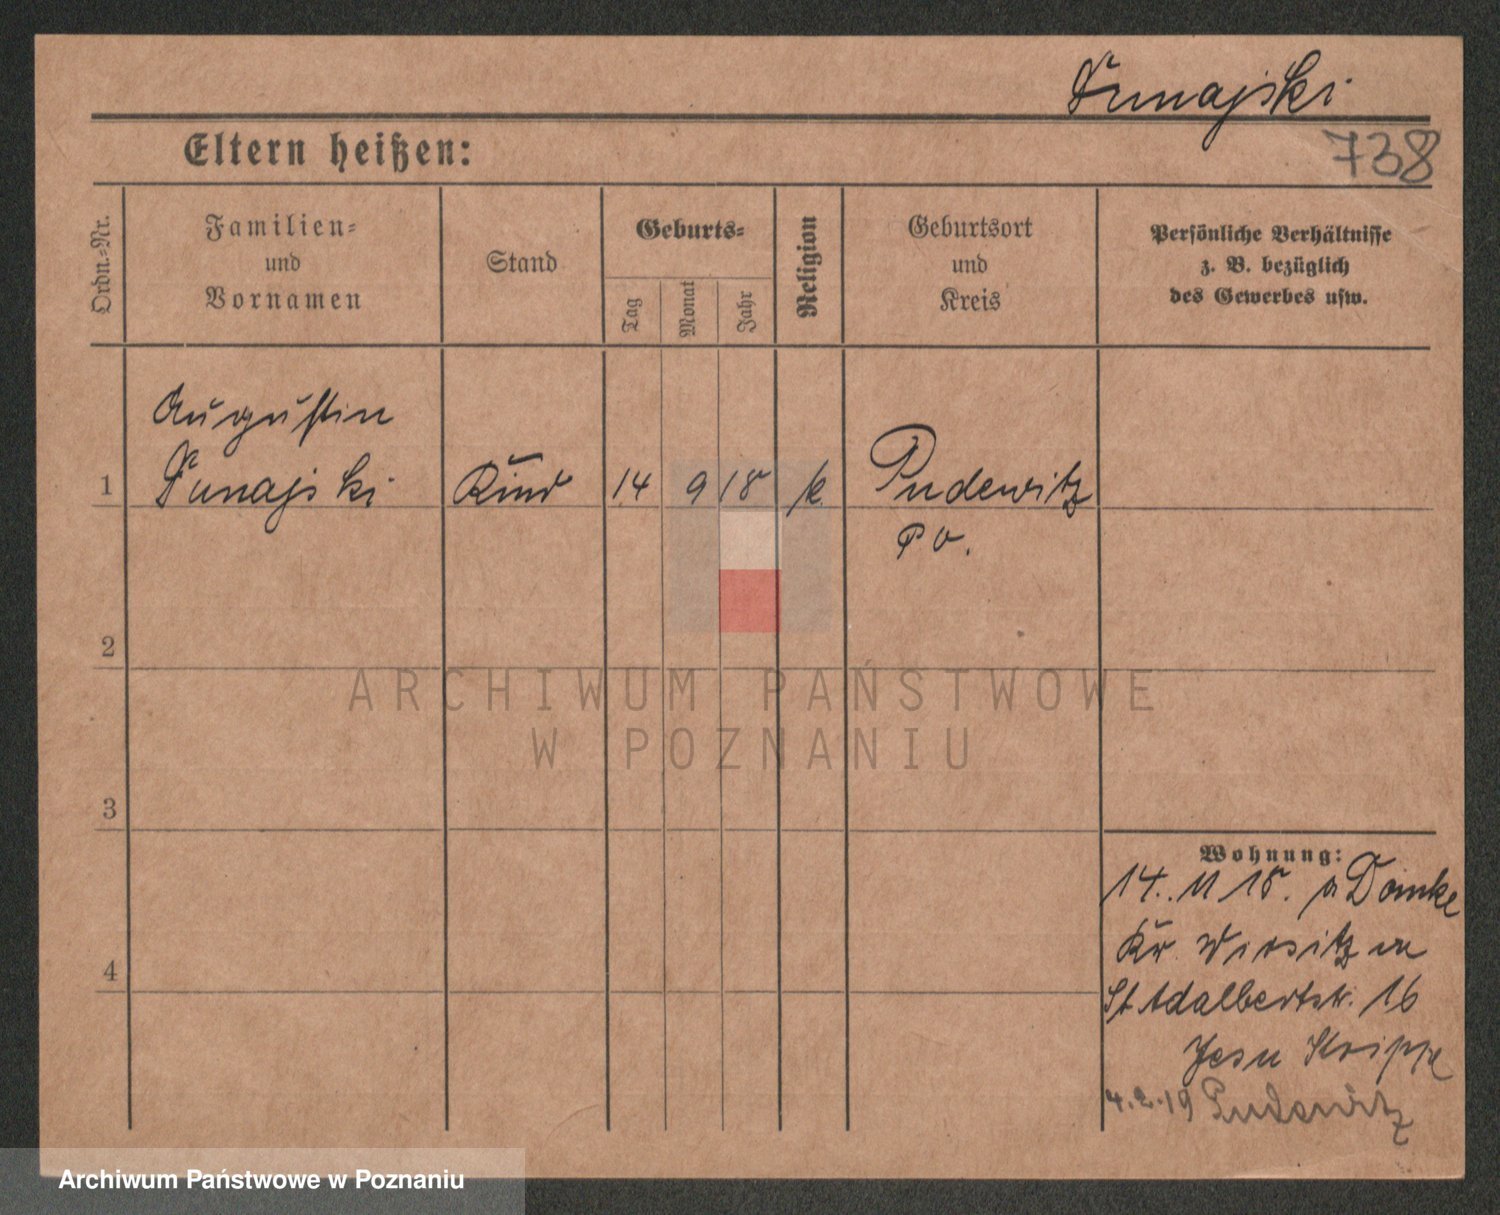 Dunajski
738
Eltern heißen:
Ordn.-Nr.
Familien-
und
Vornamen
Stand
Geburts-
Tag
Monat
Jahr
Religion
Geburtsort
und
Kreis
Persönliche Verhältnisse
z. B. bezüglich
des Gewerbes usw.
Augustin
1 Dunajski Kind 14 9 18 k Pudewitz
Po.
2
ARCHIWUM PAŃSTWOWE
W POZNANIU
3
Wohnung:
14. 11 18. a Domke
Kr. Wirsitz in
St Adalbertstr. 16
Jesu Krippe
4
4.2.19 Pudewitz
Archiwum Państwowe w Poznaniu